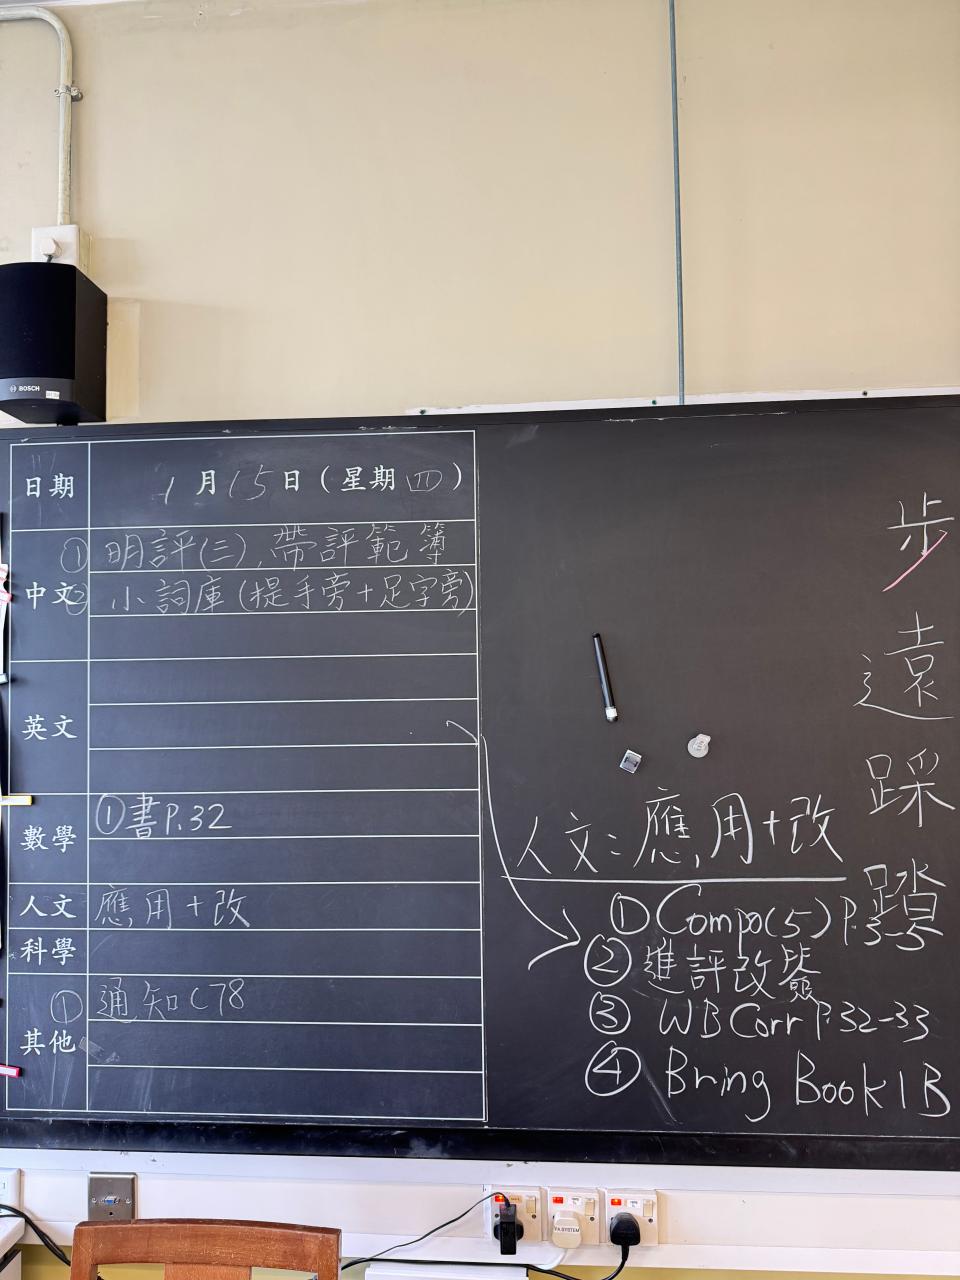 BOSCH
日期 1月15日(星期四)
中文 ① 明評(三),帶評範簿
② 小詞庫(提手旁+足字旁)
英文
數學 ①書P.32
人文 應用+改
科學
其他 ① 通知C78
步
遠
踩
踏
人文:應用+改
① Compo(5) P.3-5
② 進評改簽
③ WB Corr P.32-33
④ Bring Book 1B
P.A.SYSTEM